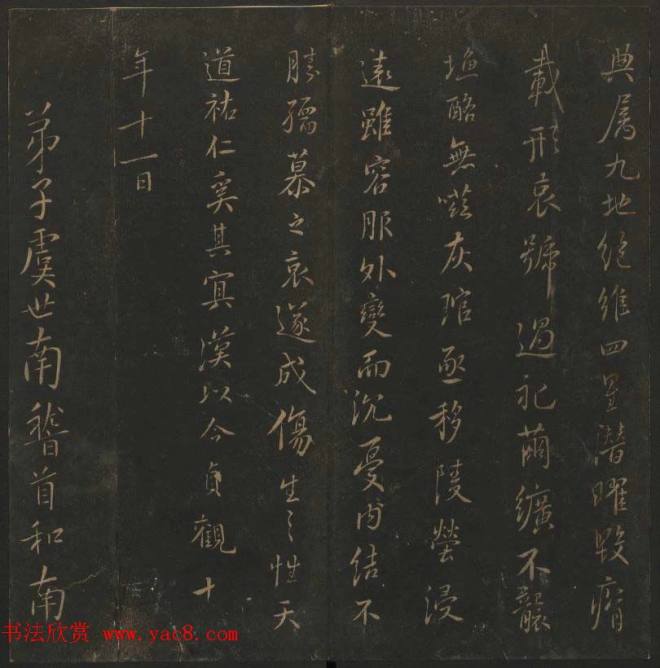 典属九地絶維四星潛曜毀瘠
載形哀號過祀繭纊不襲
塩酪無嗞灰琯亟移陵塋浸
遠雖容服外變而沉憂内結不
勝孺慕之哀遂成傷生之性天
道祐仁奚其寘漠以今貞觀十
年十一日
弟子虞世南稽首和南
书法欣赏 www.yac8.com